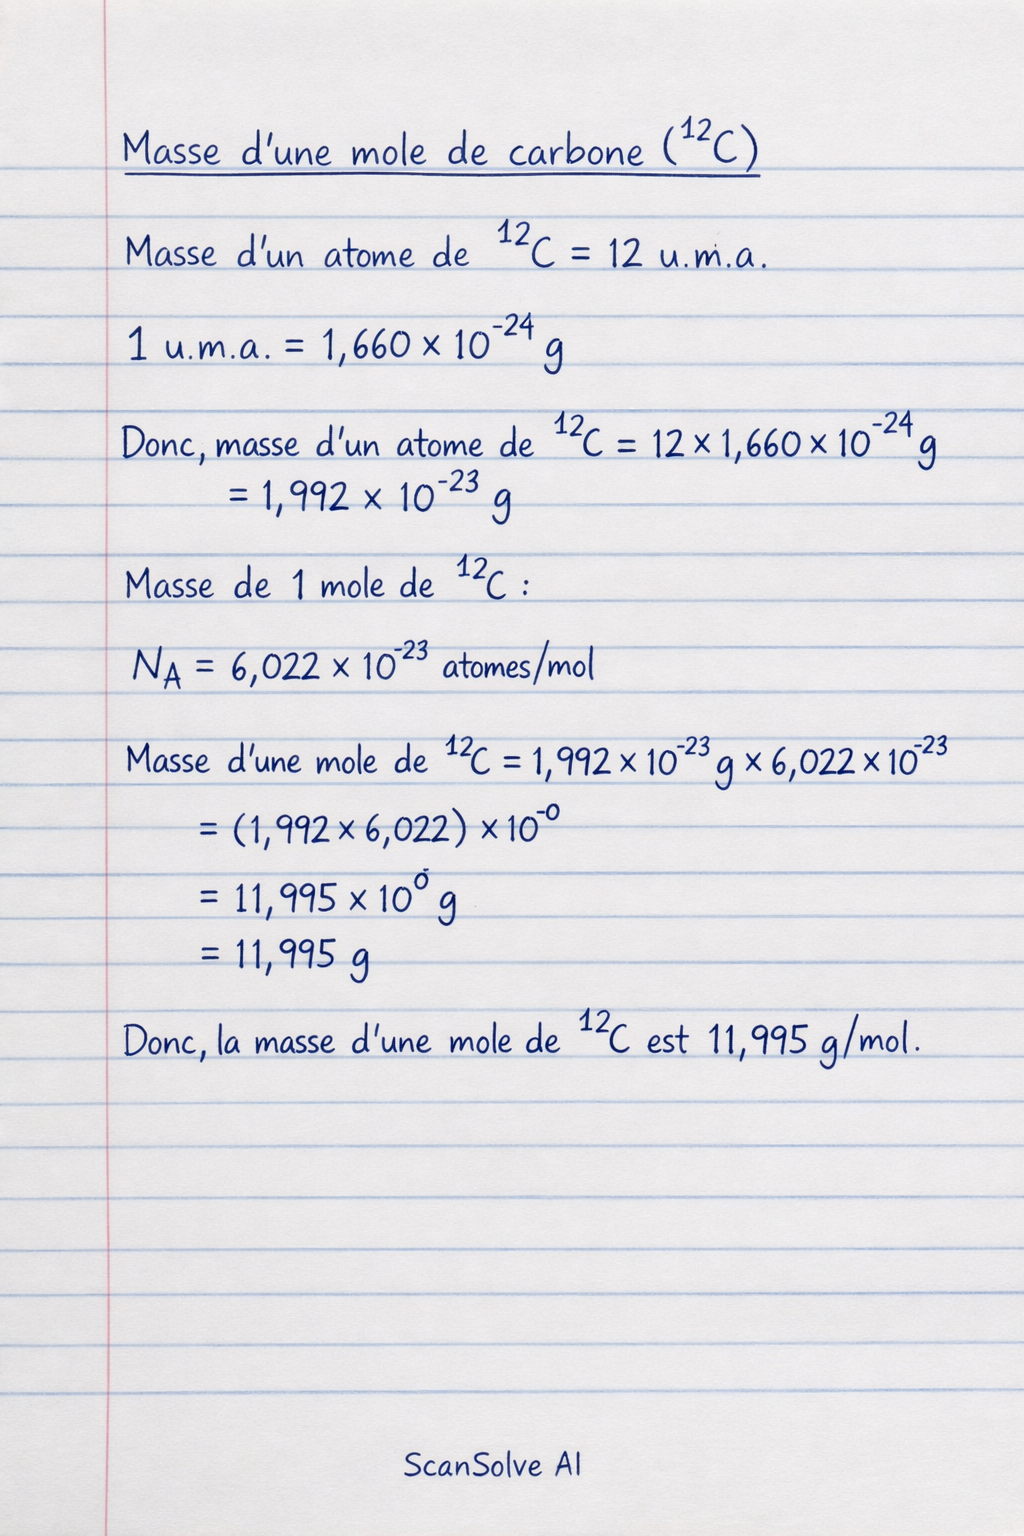 Masse d'une mole de carbone (¹²C)
Masse d'un atome de ¹²C = 12 u.m.a.
1 u.m.a. = 1,660 × 10⁻²⁴ g
Donc, masse d'un atome de ¹²C = 12 × 1,660 × 10⁻²⁴ g
= 1,992 × 10⁻²³ g
Masse de 1 mole de ¹²C :
N_A = 6,022 × 10⁻²³ atomes/mol
Masse d'une mole de ¹²C = 1,992 × 10⁻²³ g × 6,022 × 10⁻²³
= (1,992 × 6,022) × 10⁻⁰
= 11,995 × 10⁰ g
= 11,995 g
Donc, la masse d'une mole de ¹²C est 11,995 g/mol.
ScanSolve AI